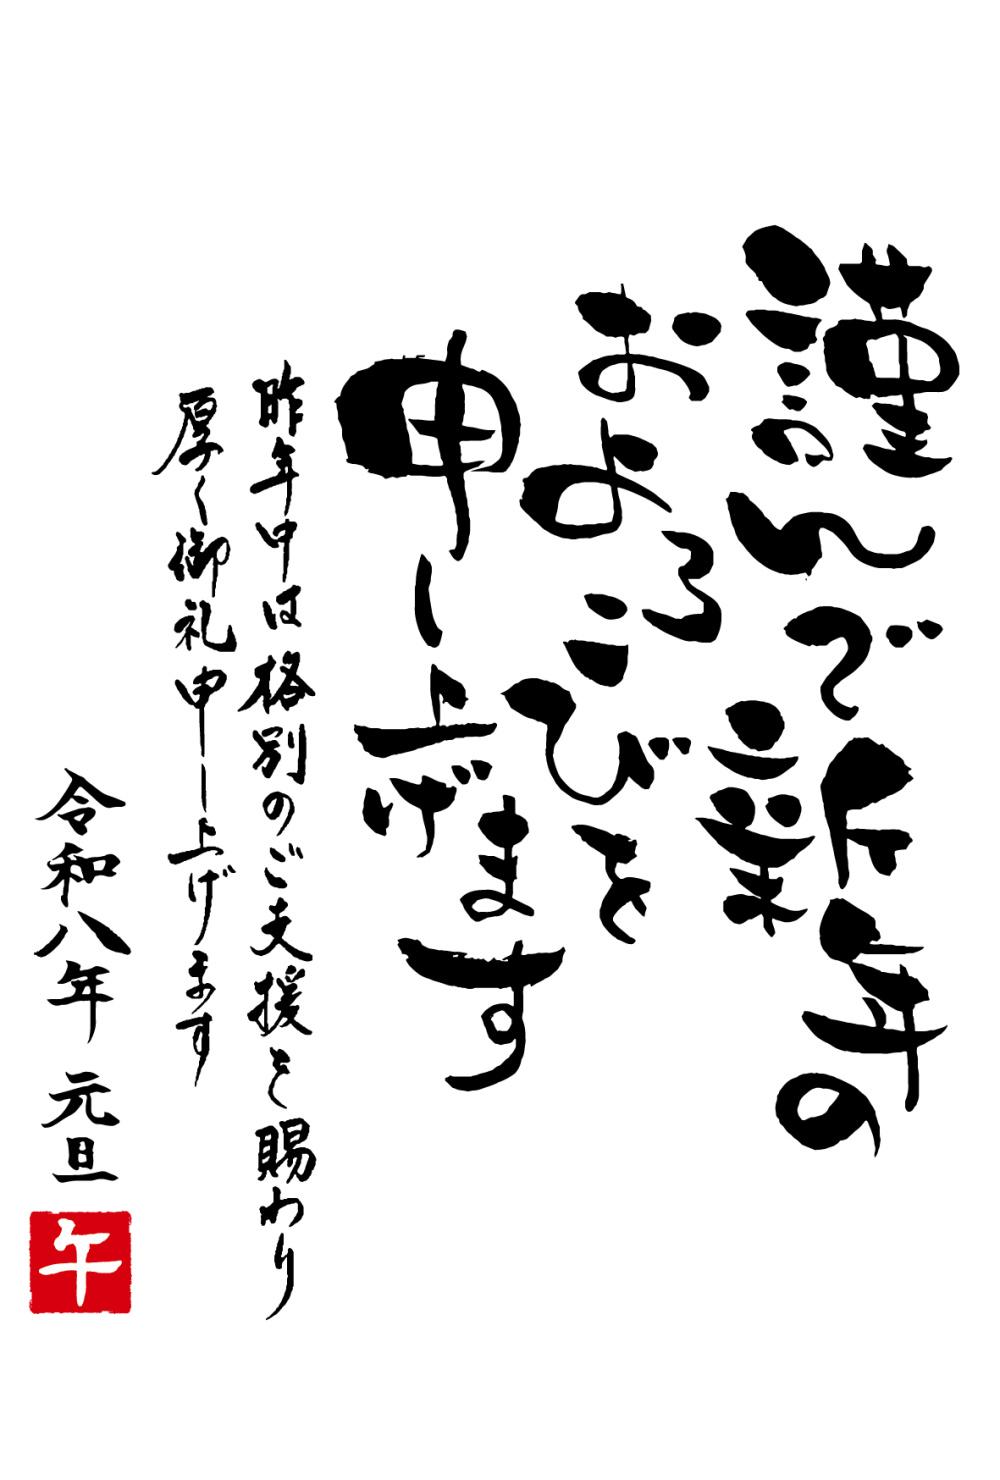 謹んで新年の
およろこびを
申し上げます
昨年中は格別のご支援を賜わり
厚く御礼申し上げます
令和八年 元旦
午